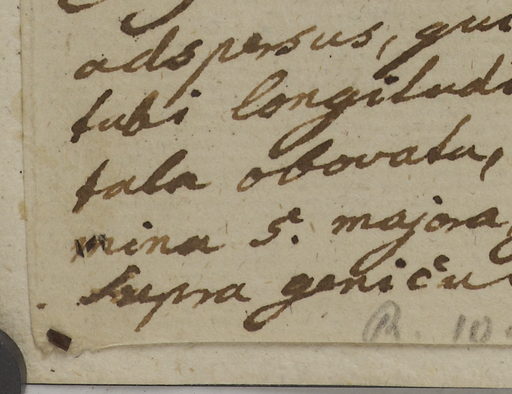 adspersus, qui
tubi longitudi
tala obovata,
mina 5. majora,
supra genicu
B. 10